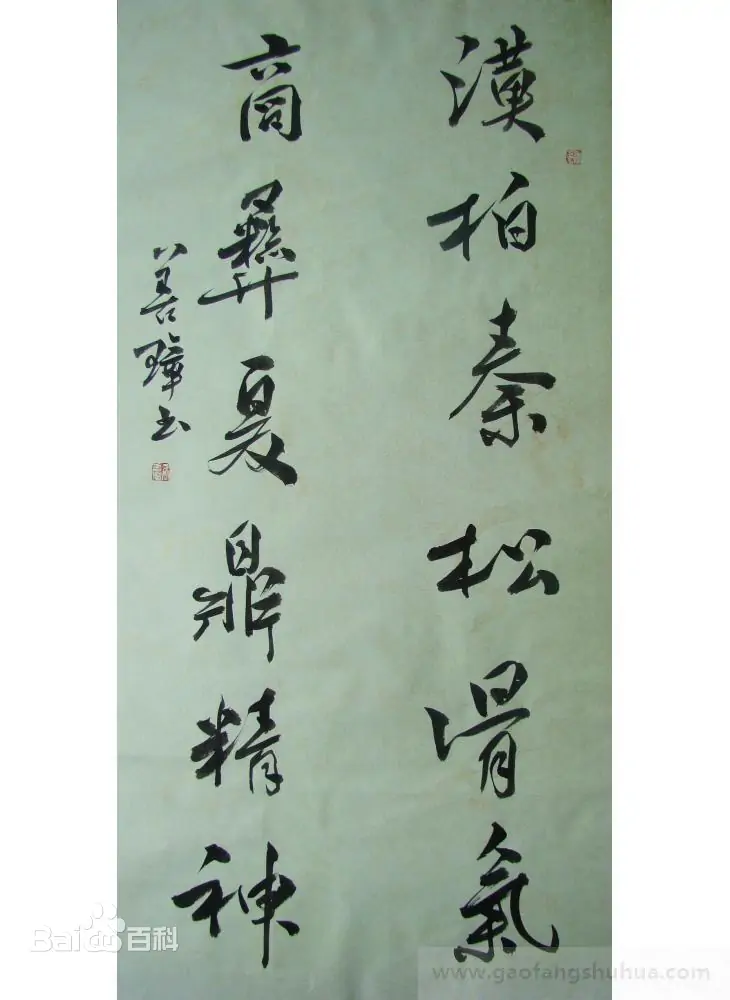 漢柏秦松骨氣
商彝夏鼎精神
善璋书
Bai百科
www.gaofangshuhua.com